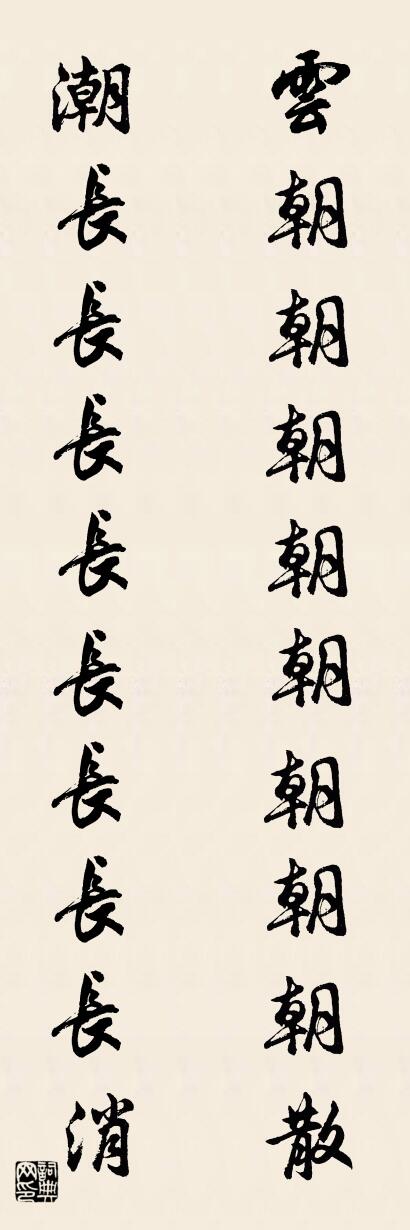 雲朝朝朝朝朝朝朝朝散
潮長長長長長長長長消
詞典
网印